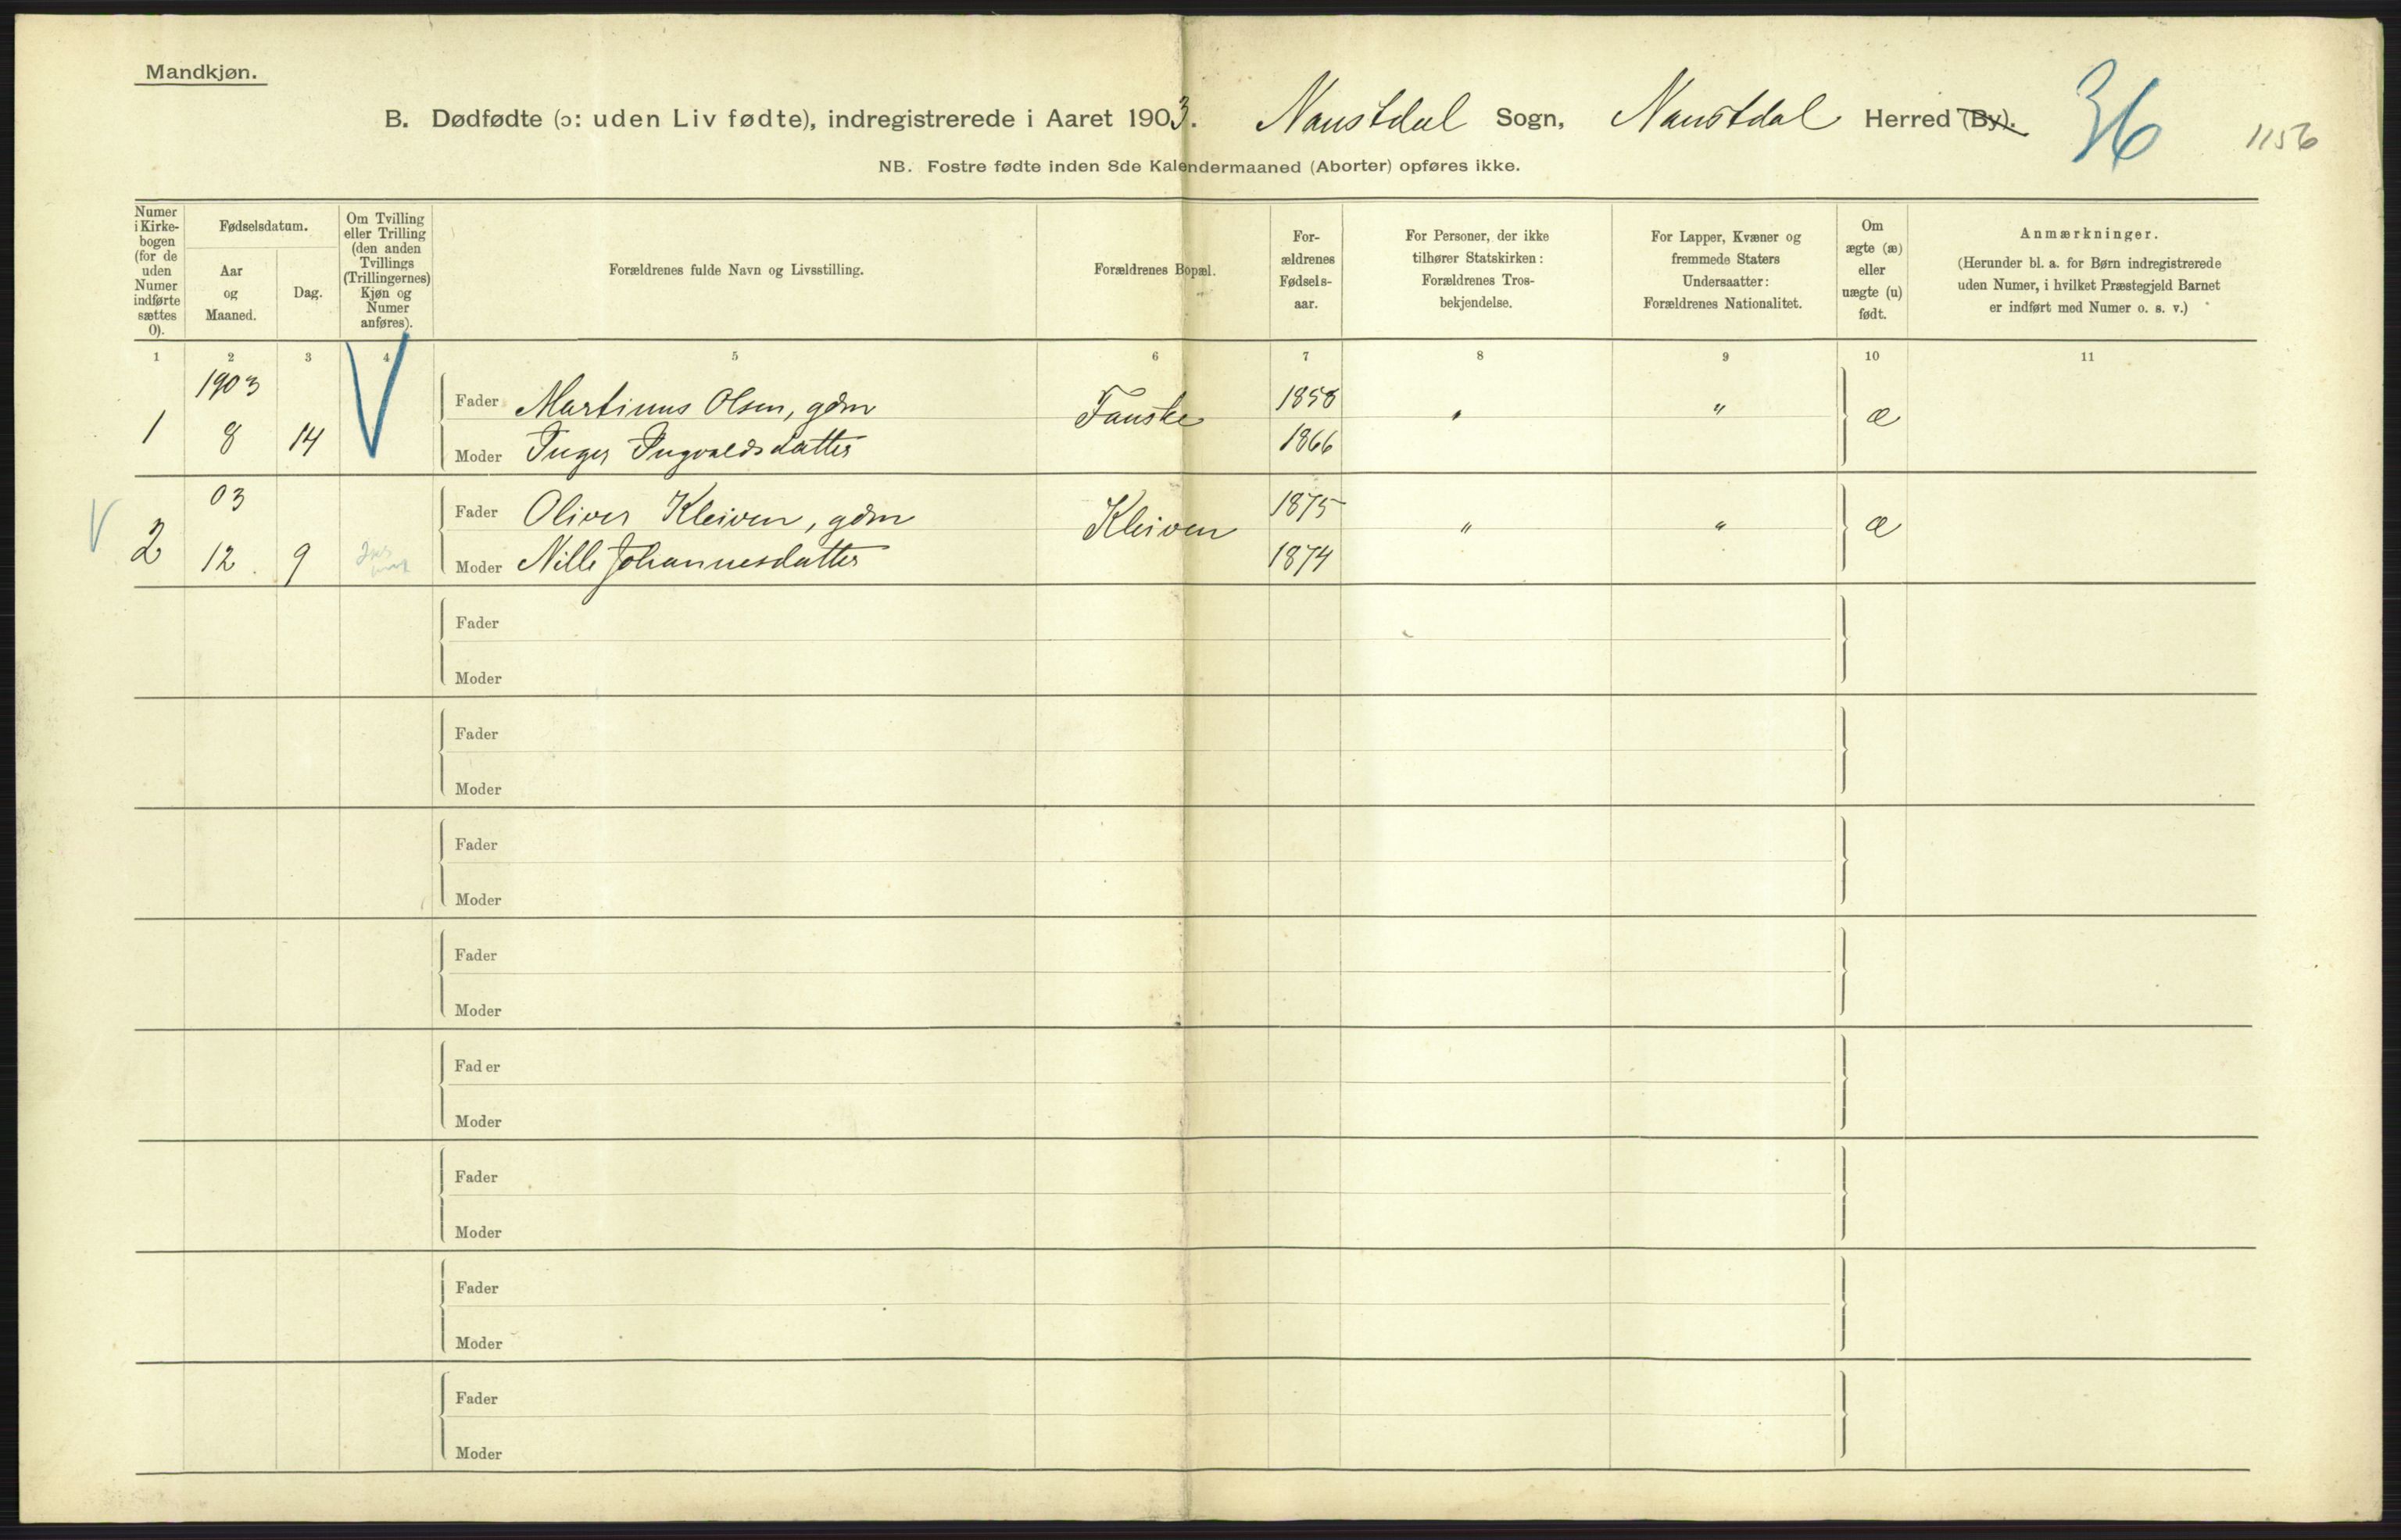 Mandkjøn.
B. Dødfødte (ɔ: uden Liv fødte), indregistrerede i Aaret 1903. Naustdal Sogn, Naustdal Herred (By). 36 1156
NB. Fostre fødte inden 8de Kalendermaaned (Aborter) opføres ikke.
Numer i Kirke-bogen (for de uden Numer indførte sættes 0).
Fødselsdatum.
Aar og Maaned.
Dag.
Om Tvilling eller Trilling (den anden Tvillings (Trillingernes) Kjøn og Numer anføres).
Forældrenes fulde Navn og Livsstilling.
Forældrenes Bopæl.
For-ældrenes Fødsels-aar.
For Personer, der ikke tilhører Statskirken: Forældrenes Tros-bekjendelse.
For Lapper, Kvæner og fremmede Staters Undersaatter: Forældrenes Nationalitet.
Om ægte (æ) eller uægte (u) født.
Anmærkninger.
(Herunder bl. a. for Børn indregistrerede uden Numer, i hvilket Præstegjeld Barnet er indført med Numer o. s. v.)
1 2 3 4 5 6 7 8 9 10 11
1903
Fader Martinus Olsen, gdm Fauske 1858 " " æ
1 8 14 Moder Inger Ingvaldsdatter 1866
03
Fader Oliver Kleiven, gdm Kleiven 1875 " " æ
2 12. 9 Moder Nille Johannesdatter 1874
Fader
Moder
Fader
Moder
Fader
Moder
Fader
Moder
Fader
Moder
Fader
Moder
Fader
Moder
Fader
Moder